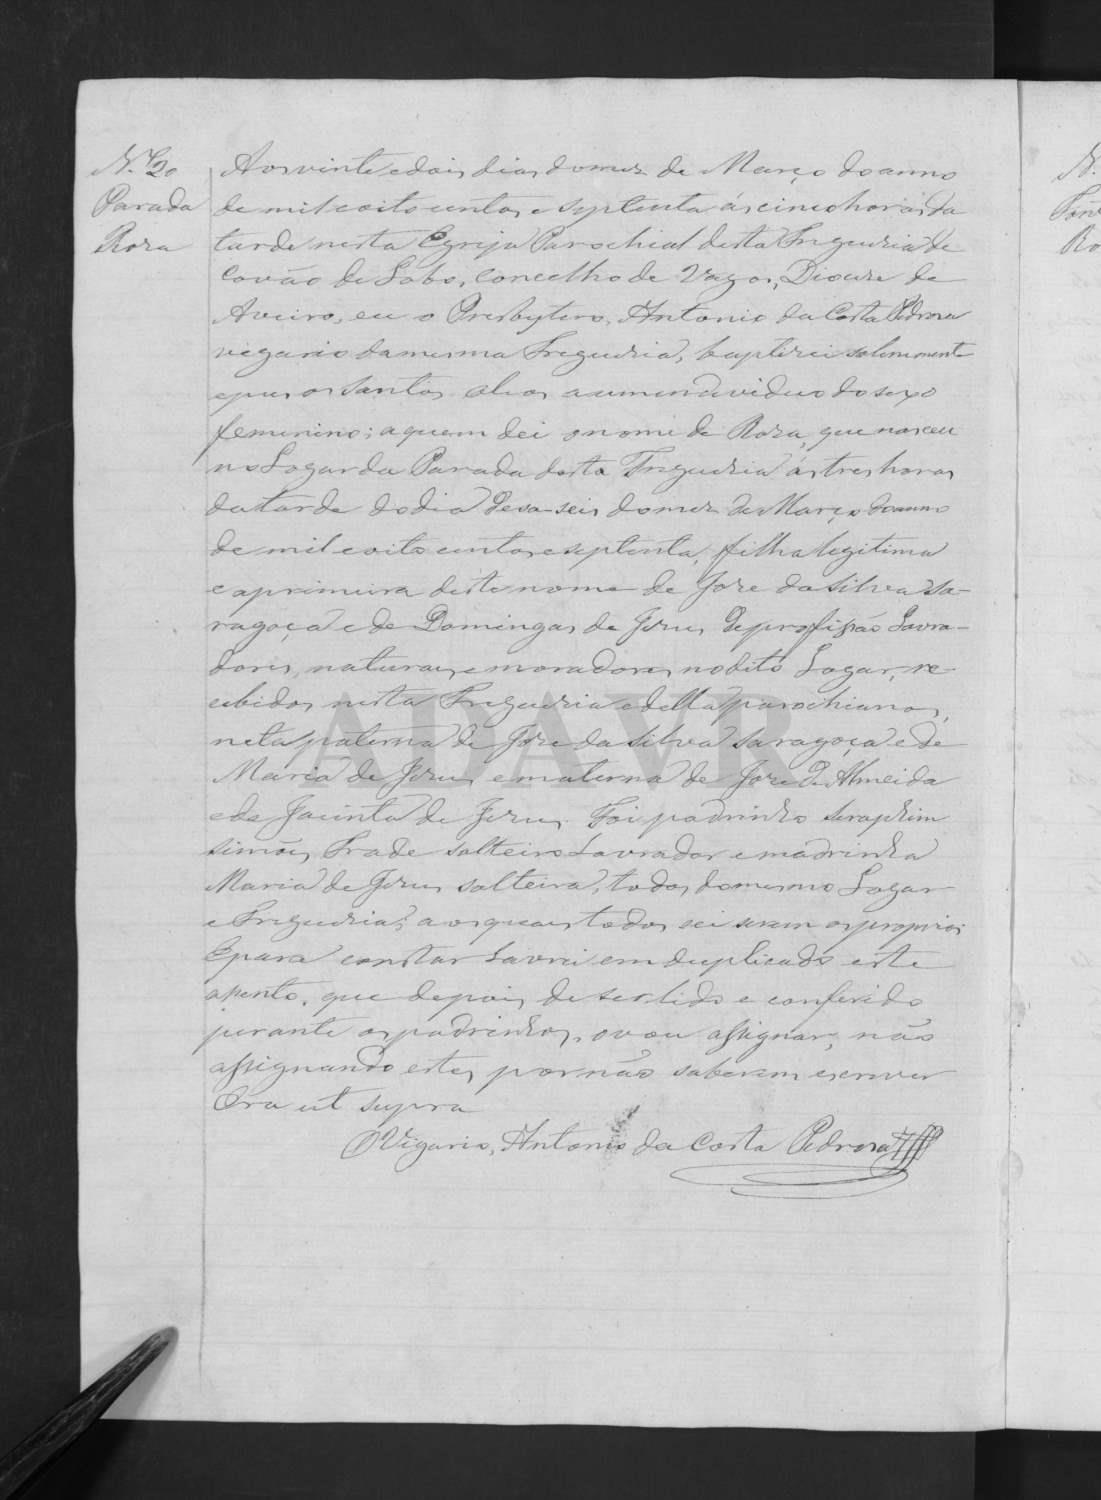 N.º 20
Parada
Roza
Aos vinte e dois dias do mez de Março do anno
de mil e oito centos e septenta ás cinco horas da
tarde nesta Egreja Parochial desta Freguezia de
Covão de Lobo, Concelho de Vagos, Diocese de
Aveiro, eu o Presbytero, Antonio da Costa Pedroza
vigario da mesma Freguezia, baptizei solemnemente
e puz os Santos oleos a um individuo do sexo
femenino; a quem dei o nome de Roza, que nasceu
no Lugar da Parada desta Freguezia ás tres horas
da tarde do dia desa-seis do mez de Março do anno
de mil e oito centos e septenta, filha legitima
e a primeira deste nome de Joze da Silva Sa-
ragoça e de Domingas de Jezus de profissão Lavra-
dores, naturaes e moradores no dito Lugar, re-
cebidos nesta Freguezia e della parochianos,
neta paterna de Joze da Silva Saragoça e de
Maria de Jezus e materna de Joze de Almeida
e de Jacinta de Jezus. Foi padrinho Seraphim
Simões Frade solteiro Lavrador e madrinha
Maria de Jezus solteira, todos do mesmo Lugar
e Freguezia; aos quaes todos sei serem os proprios
E para constar lavrei em duplicado este
assento, que depois de ser lido e conferido
perante os padrinhos, o vou assignar, não
assignando estes por não saberem escrever
Era ut supra
O Vigario, Antonio da Costa Pedroza
ADAVR
N.